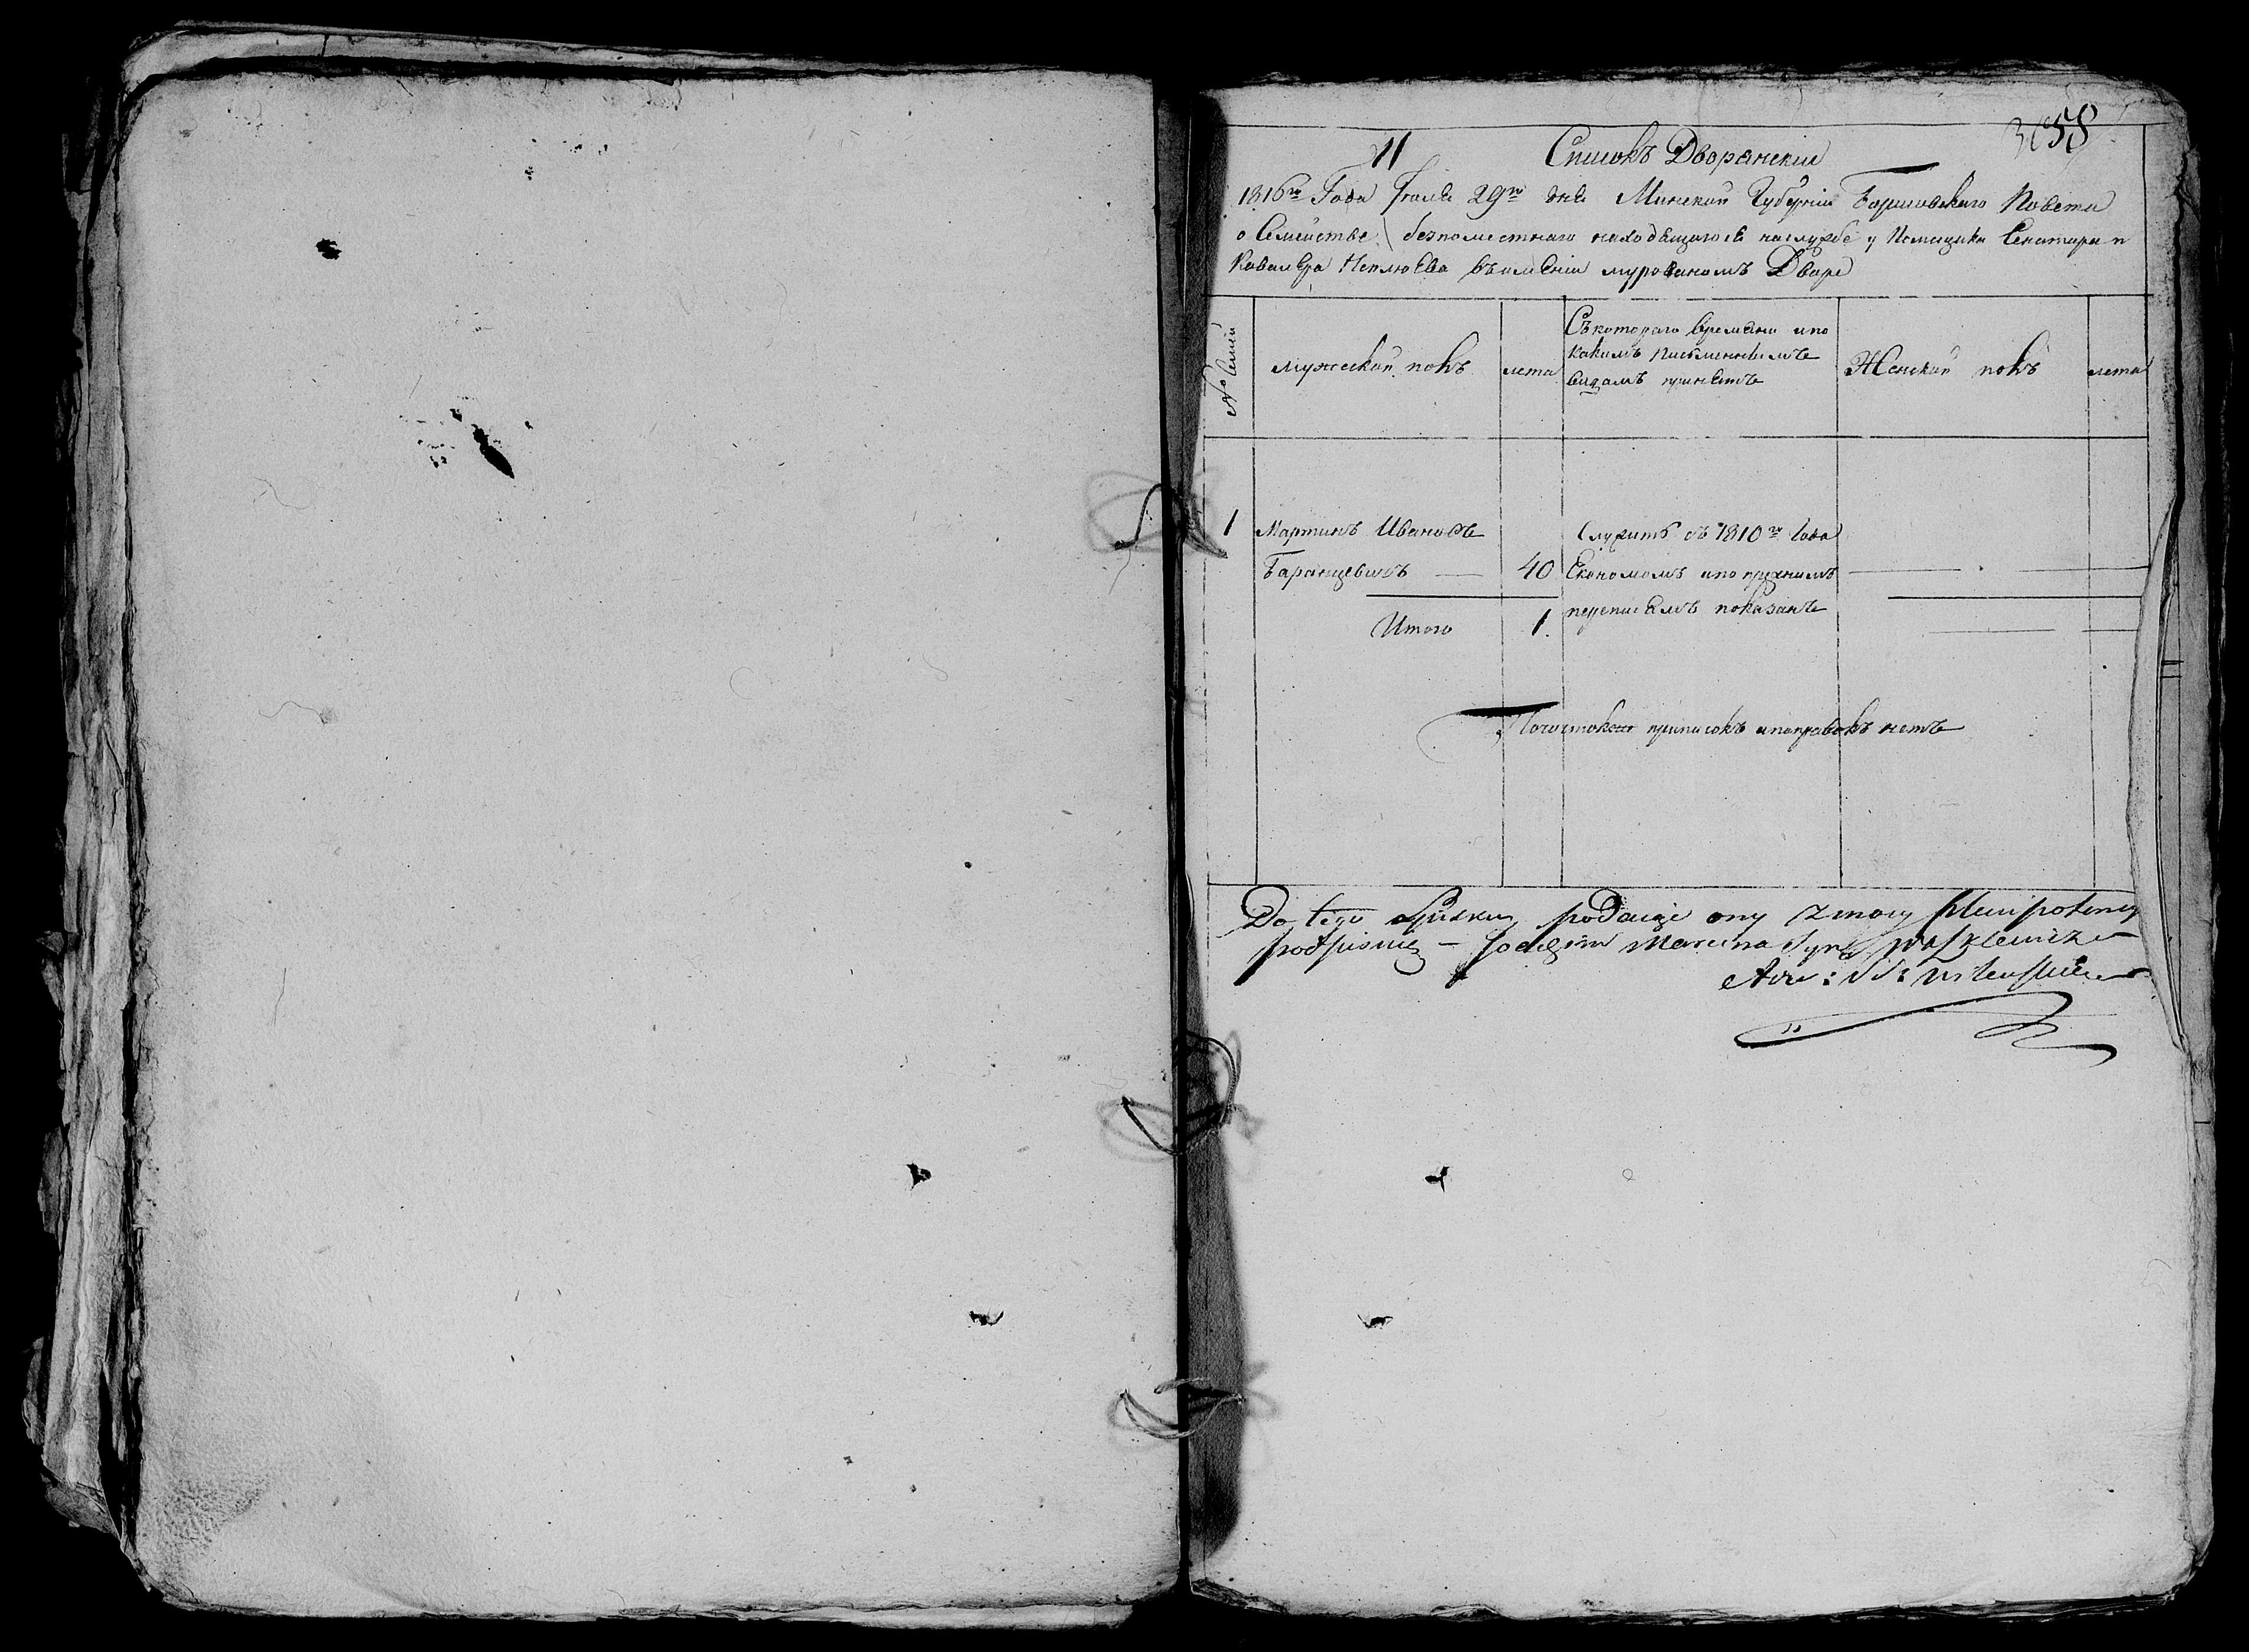 11 Списокъ Дворянскiи
58
1816го Года Iюля 29го дня Минской Губернiи Борисовского Повета
о Семействе безпоместнаго находящагося наслужбе у Помещика Сенатора и
Кавалера Неплюева въимѣнiи мурованомъ Дворе
№ Семiи
мужеской полъ
лета
Съкотораго времяни ипо
какимъ писменнымъ
видамъ принятъ
Женской полъ
лета
1 Мартинъ Ивановъ
Баранцевичъ — 40
Служитъ съ 1810го Года
Економомъ ипо прежнимъ
переписямъ показанъ
Итого 1.
Почисток приписокъ ипоправокъ нетъ
Do tego Spisku podaiąc ony z mocy plenipotencyi
podpisuię — Joachim Marcina Syn